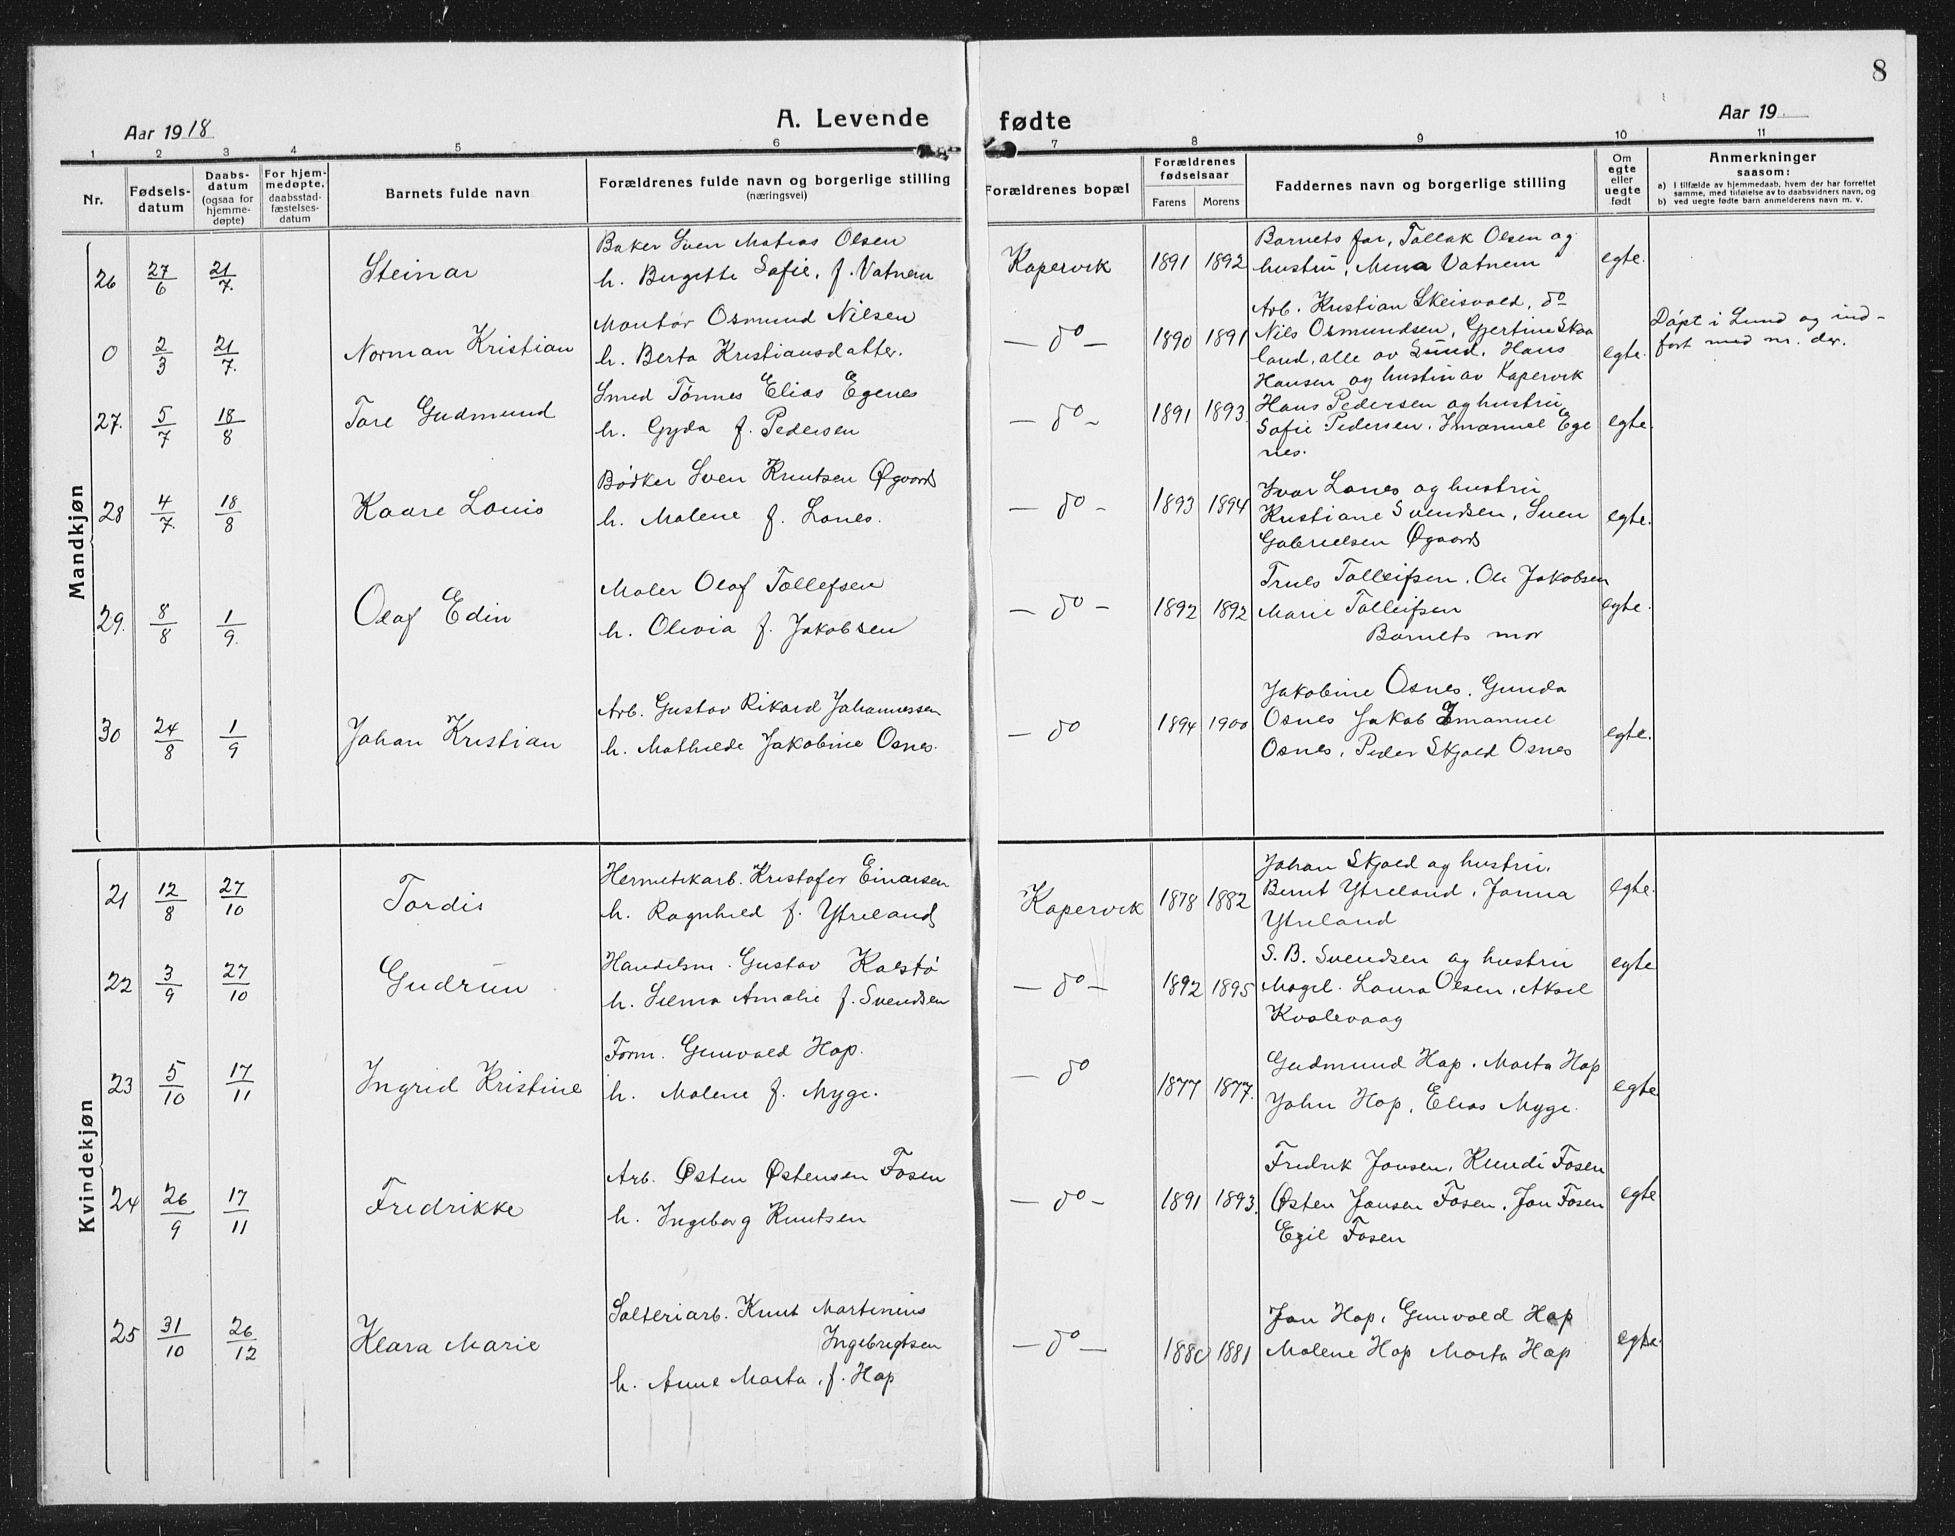 8
Aar 1918
A. Levende fødte
Aar 19
1 2 3 4 5 6 7 8 9 10 11
Nr.
Fødsels-
datum
Daabs-
datum
(ogsaa for
hjemme-
døpte)
For hjem-
medøpte,
daabsstad-
fæstelses-
datum
Barnets fulde navn
Forældrenes fulde navn og borgerlige stilling
(næringsvei)
Forældrenes bopæl
Forældrenes
fødselsaar
Farens Morens
Faddernes navn og borgerlige stilling
Om
egte
eller
uegte
født
Anmerkninger
saasom:
a) I tilfælde av hjemmedaab, hvem der har forrettet
samme, med tilføielse av to daabsvidners navn, og
b) ved uegte fødte barn anmelderens navn m. v.
Mandkjøn
26 27/6 21/7. Steinar
Baker Sven Matias Olsen
h. Birgitte Sofie, f. Vatnem
Kopervik 1891 1892
Barnets far, Tollak Olsen og
hustru, Mena Vatnem
egte.
0 2/3 21/7. Norman Kristian
Montør Osmund Nilsen
h. Berta Kristiansdatter.
— do — 1890 1891
Arb. Kristian Skeisvold, do
Nils Osmundsen, Gjertine Skaa
land, alle av Sund, Hans
Hansen og hustru av Kopervik
egte.
Døpt i Sund og ind-
ført med nr. der.
27. 5/7 18/8 Tore Gudmund
Smed Tønnes Elias Egenes
h. Gyda f. Pedersen
— do — 1891 1893.
Hans Pedersen og hustru
Sofie Pedersen, Imanuel Ege
nes.
egte.
28 4/7. 18/8 Kaare Louis
Bødker Sven Knutsen Øgaard
h. Malene f. Lones.
— do — 1893 1894
Ivar Lones og hustru
Kristiane Svendsen, Sven
Gabrielsen Øgaard
egte.
29. 8/8 1/9. Olaf Edin
Maler Olaf Tollefsen
h. Olivia f. Jakobsen
— do — 1892 1892
Truls Tolleifsen. Ole Jakobsen
Marie Tolleifsen
Barnets mor
egte.
30 24/8 1/9 Johan Kristian
Arb. Gustav Rikard Johannessen
h. Mathilde Jakobine Osnes.
— do 1894 1900
Jakobine Osnes. Gunda
Osnes Jakob Imanuel
Osnes, Peder Skjold Osnes
egte.
Kvindekjøn
21 12/8 27/10 Tordis
Hermetikarb. Kristofer Einarsen
h. Ragnhild f. Ytreland
Kopervik 1878 1882
Johan Skjold og hustru,
Bernt Ytreland, Janna
Ytreland
egte.
22 3/9 27/10 Gudrun
Handelsm. Gustav Kolstø
h. Selma Amalie f. Svendsen
— do — 1892 1895
S. B. Svendsen og hustru
Magl. Laura Olsen, Aksel
Kvalevaag
egte
23 5/10 17/11 Ingrid Kristine
Form. Gunvald Hop.
h. Malene f. Myge.
— do 1877 1877.
Gudmund Hop, Marta Hop
John Hop, Elias Myge.
egte.
24 26/9 17/11 Fredrikke
Arb. Østen Østensen Fosen
h. Ingeborg Knutsen
— do — 1891 1893.
Fredrik Jonsen, Knudi Fosen
Østen Jonsen Fosen, Jon Fosen
Egil Fosen
egte
25 31/10 26/12 Klara Marie
Salteriarb. Knut Martinius
Ingebrigtsen
h. Anne Marta, f. Hop
— do — 1880 1881
Jon Hop, Gunvald Hop
Malene Hop Marta Hop
egte.